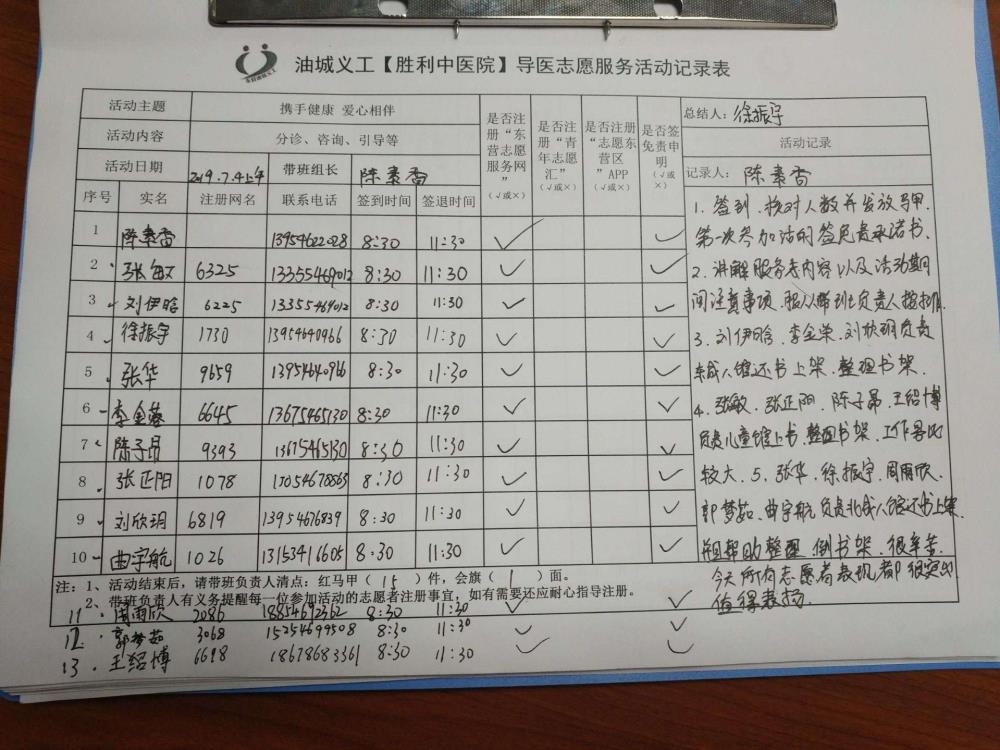 油城义工【胜利中医院】导医志愿服务活动记录表
活动主题 携手健康 爱心相伴
活动内容 分诊、咨询、引导等
活动日期 2019.7.4上午 带班组长 陈素香
是否注册“东营志愿服务网”（√或×） 是否注册“青年志愿汇”（√或×） 是否注册“志愿东营区”APP（√或×） 是否签免责申明（√或×）
序号 实名 注册网名 联系电话 签到时间 签退时间
1 陈素香 13954622028 8:30 11:30 √ √
2 张敏 6325 13355469012 8:30 11:30 √ √
3 刘伊晗 6225 13355469012 8:30 11:30 √ √
4 徐振宇 1730 13954640966 8:30 11:30 √ √
5 张华 9659 13954640966 8:30 11:30 √ √
6 李金蓉 6645 13675465130 8:30 11:30 √ √
7 陈子昂 9393 13675465130 8:30 11:30 √ √
8 张正阳 1078 15054678863 8:30 11:30 √ √
9 刘欣玥 6819 13954676839 8:30 11:30 √ √
10 曲宇航 1026 13153416605 8:30 11:30 √ √
注：1、活动结束后，请带班负责人清点：红马甲（15）件，会旗（1）面。
2、带班负责人有义务提醒每一位参加活动的志愿者注册事宜，如有需要还应耐心指导注册。
11 周雨欣 2086 18854692362 8:30 11:30 √ √
12 郭梦茹 3068 15254699508 8:30 11:30 √ √
13 王绍博 6698 18678683361 8:30 11:30 √ √
总结人：徐振宇
活动记录
记录人：陈素香
1、签到、核对人数并发放马甲
第一次参加活动的签免责承诺书.
2、讲解服务者内容以及活动期
间注意事项、服从带班负责人
3、刘伊晗、李金荣、刘欣玥负责
东成人馆还书上架、整理书架.
4、张敏、张正阳、陈子昂、王绍博
负责儿童馆上书、整理书架、工作量比
较大、5、张华、徐振宇、周雨欣、
郭梦茹、曲宇航负责北成人馆还书上架
并且帮助整理、倒书架、很辛苦.
今天所有志愿者表现都很突出
值得表扬.